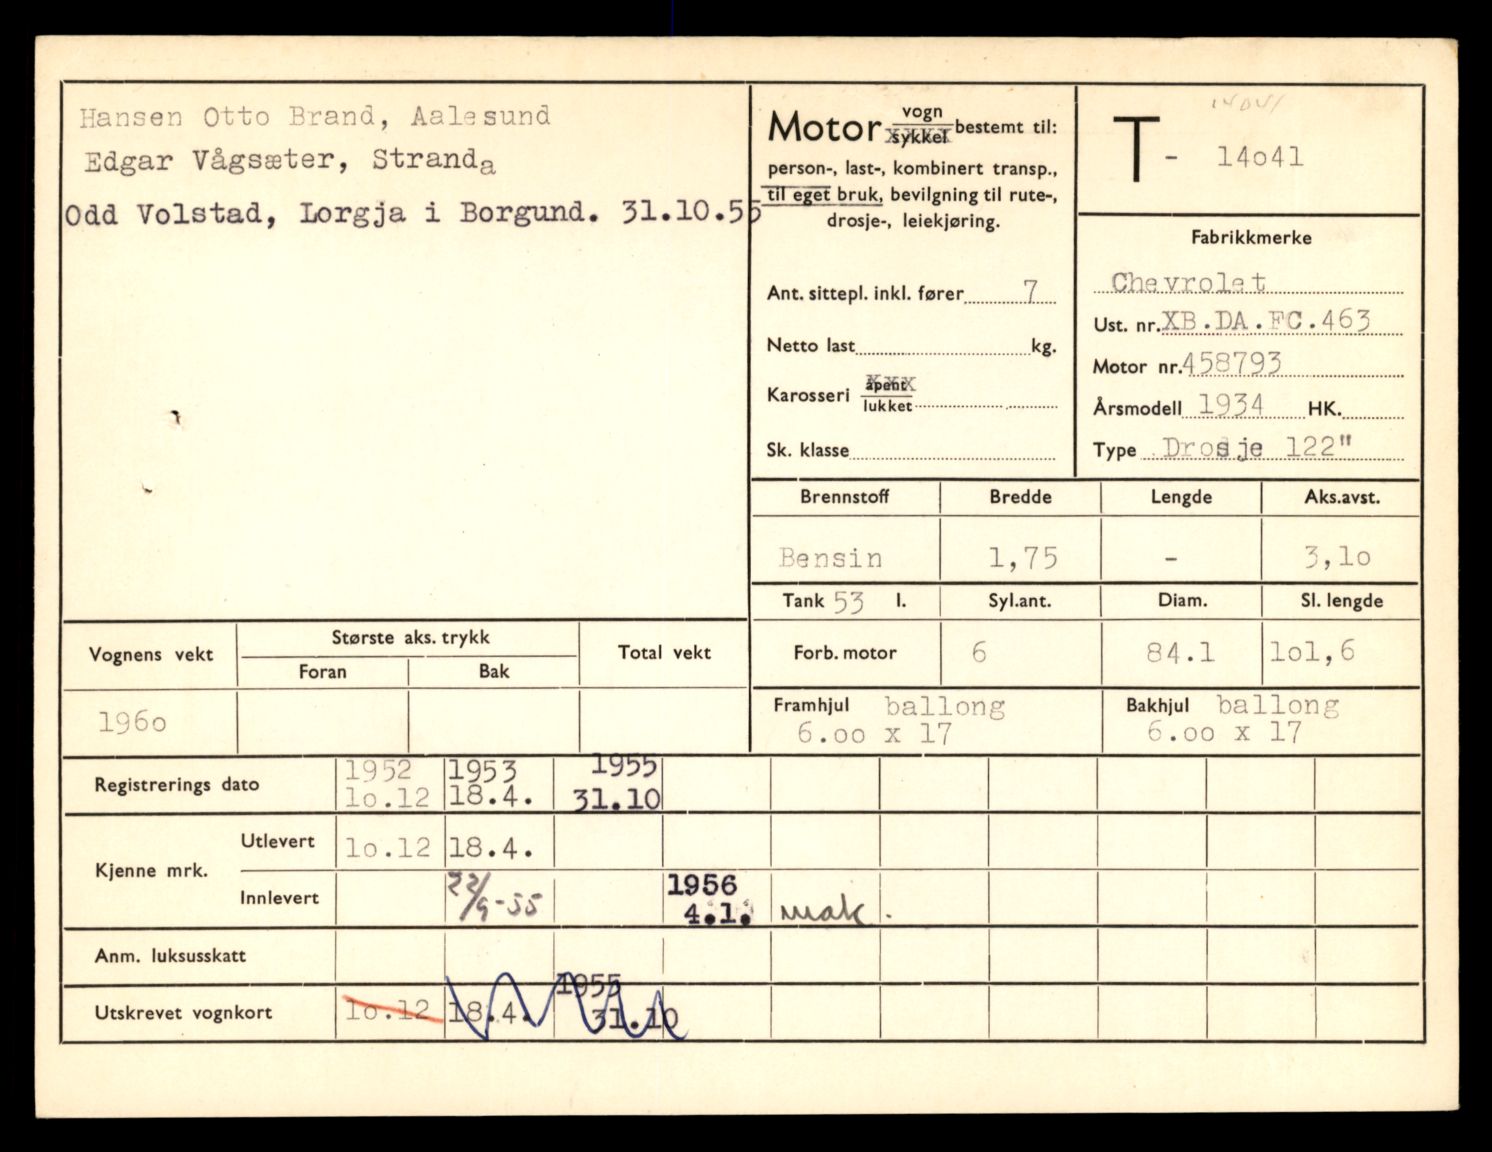 Hansen Otto Brand, Aalesund
Edgar Vågsæter, Stranda
Odd Volstad, Lorgja i Borgund. 31.10.55
Motor vogn/sykkel bestemt til:
person-, last-, kombinert transp.,
til eget bruk, bevilgning til rute-,
drosje-, leiekjøring.
Ant. sittepl. inkl. fører 7
Netto last kg.
Karosseri åpent/lukket
Sk. klasse
14041
T - 14o41
Fabrikkmerke
Chevrolet
Ust. nr. XB.DA.FC.463
Motor nr. 458793
Årsmodell 1934 HK.
Type Drosje 122"
Brennstoff Bredde Lengde Aks.avst.
Bensin 1,75 - 3,1o
Tank 53 l. Syl.ant. Diam. Sl. lengde
Forb. motor 6 84.1 1o1,6
Framhjul ballong Bakhjul ballong
6.oo x 17 6.oo x 17
Vognens vekt Største aks. trykk Total vekt
Foran Bak
196o
Registrerings dato 1952 1953 1955
1o.12 18.4. 31.10
Kjenne mrk. Utlevert 1o.12 18.4.
Innlevert 22/9-55 1956 4.1. mak.
Anm. luksusskatt
Utskrevet vognkort 1o.12 18.4. 1955 31.10